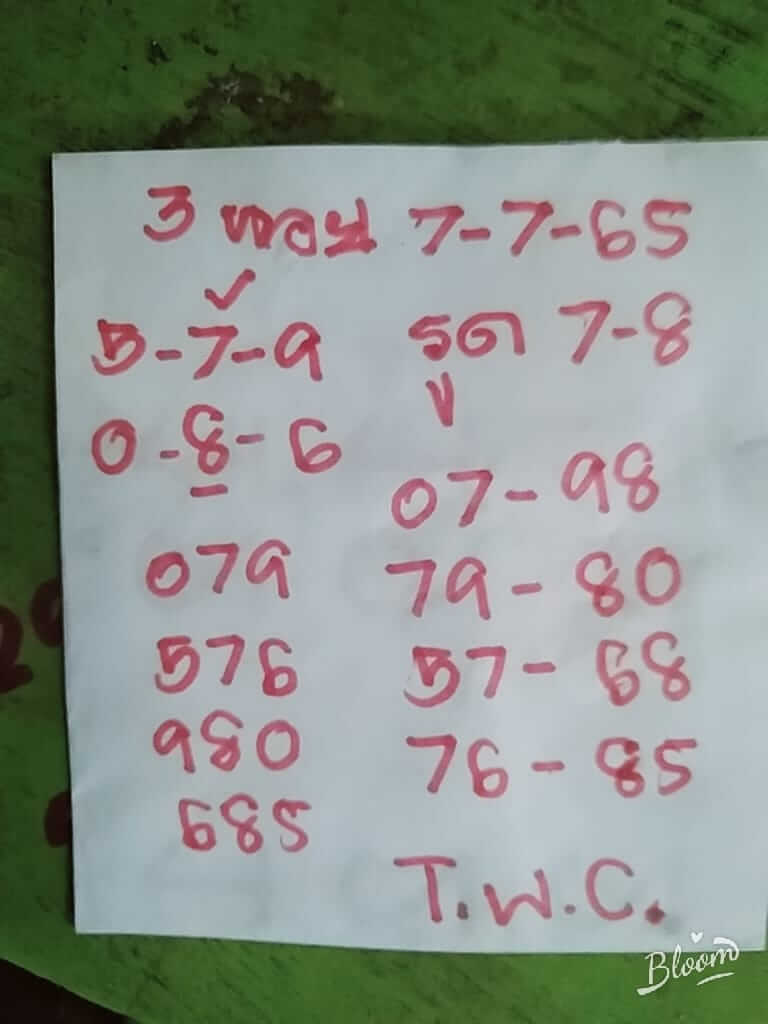 3 หอย 7-7-65
5-7-9 รูด 7-8
0-8-6
07-98
079 79-80
576 57-68
980 76-85
685
T.W.C.
Bloom